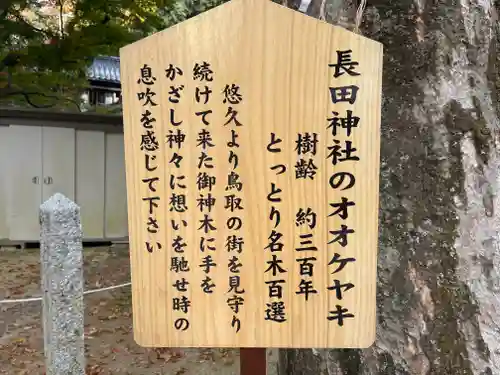 長田神社のオオケヤキ
樹齢 約三百年
とっとり名木百選
悠久より鳥取の街を見守り
続けて来た御神木に手を
かざし神々に想いを馳せ時の
息吹を感じて下さい